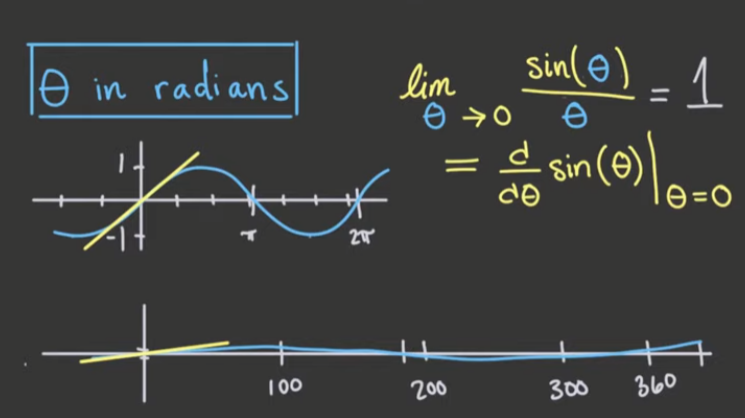 θ in radians
lim θ→0 sin(θ)/θ = 1
= d/dθ sin(θ)|θ=0
1
-1
π 2π
100 200 300 360